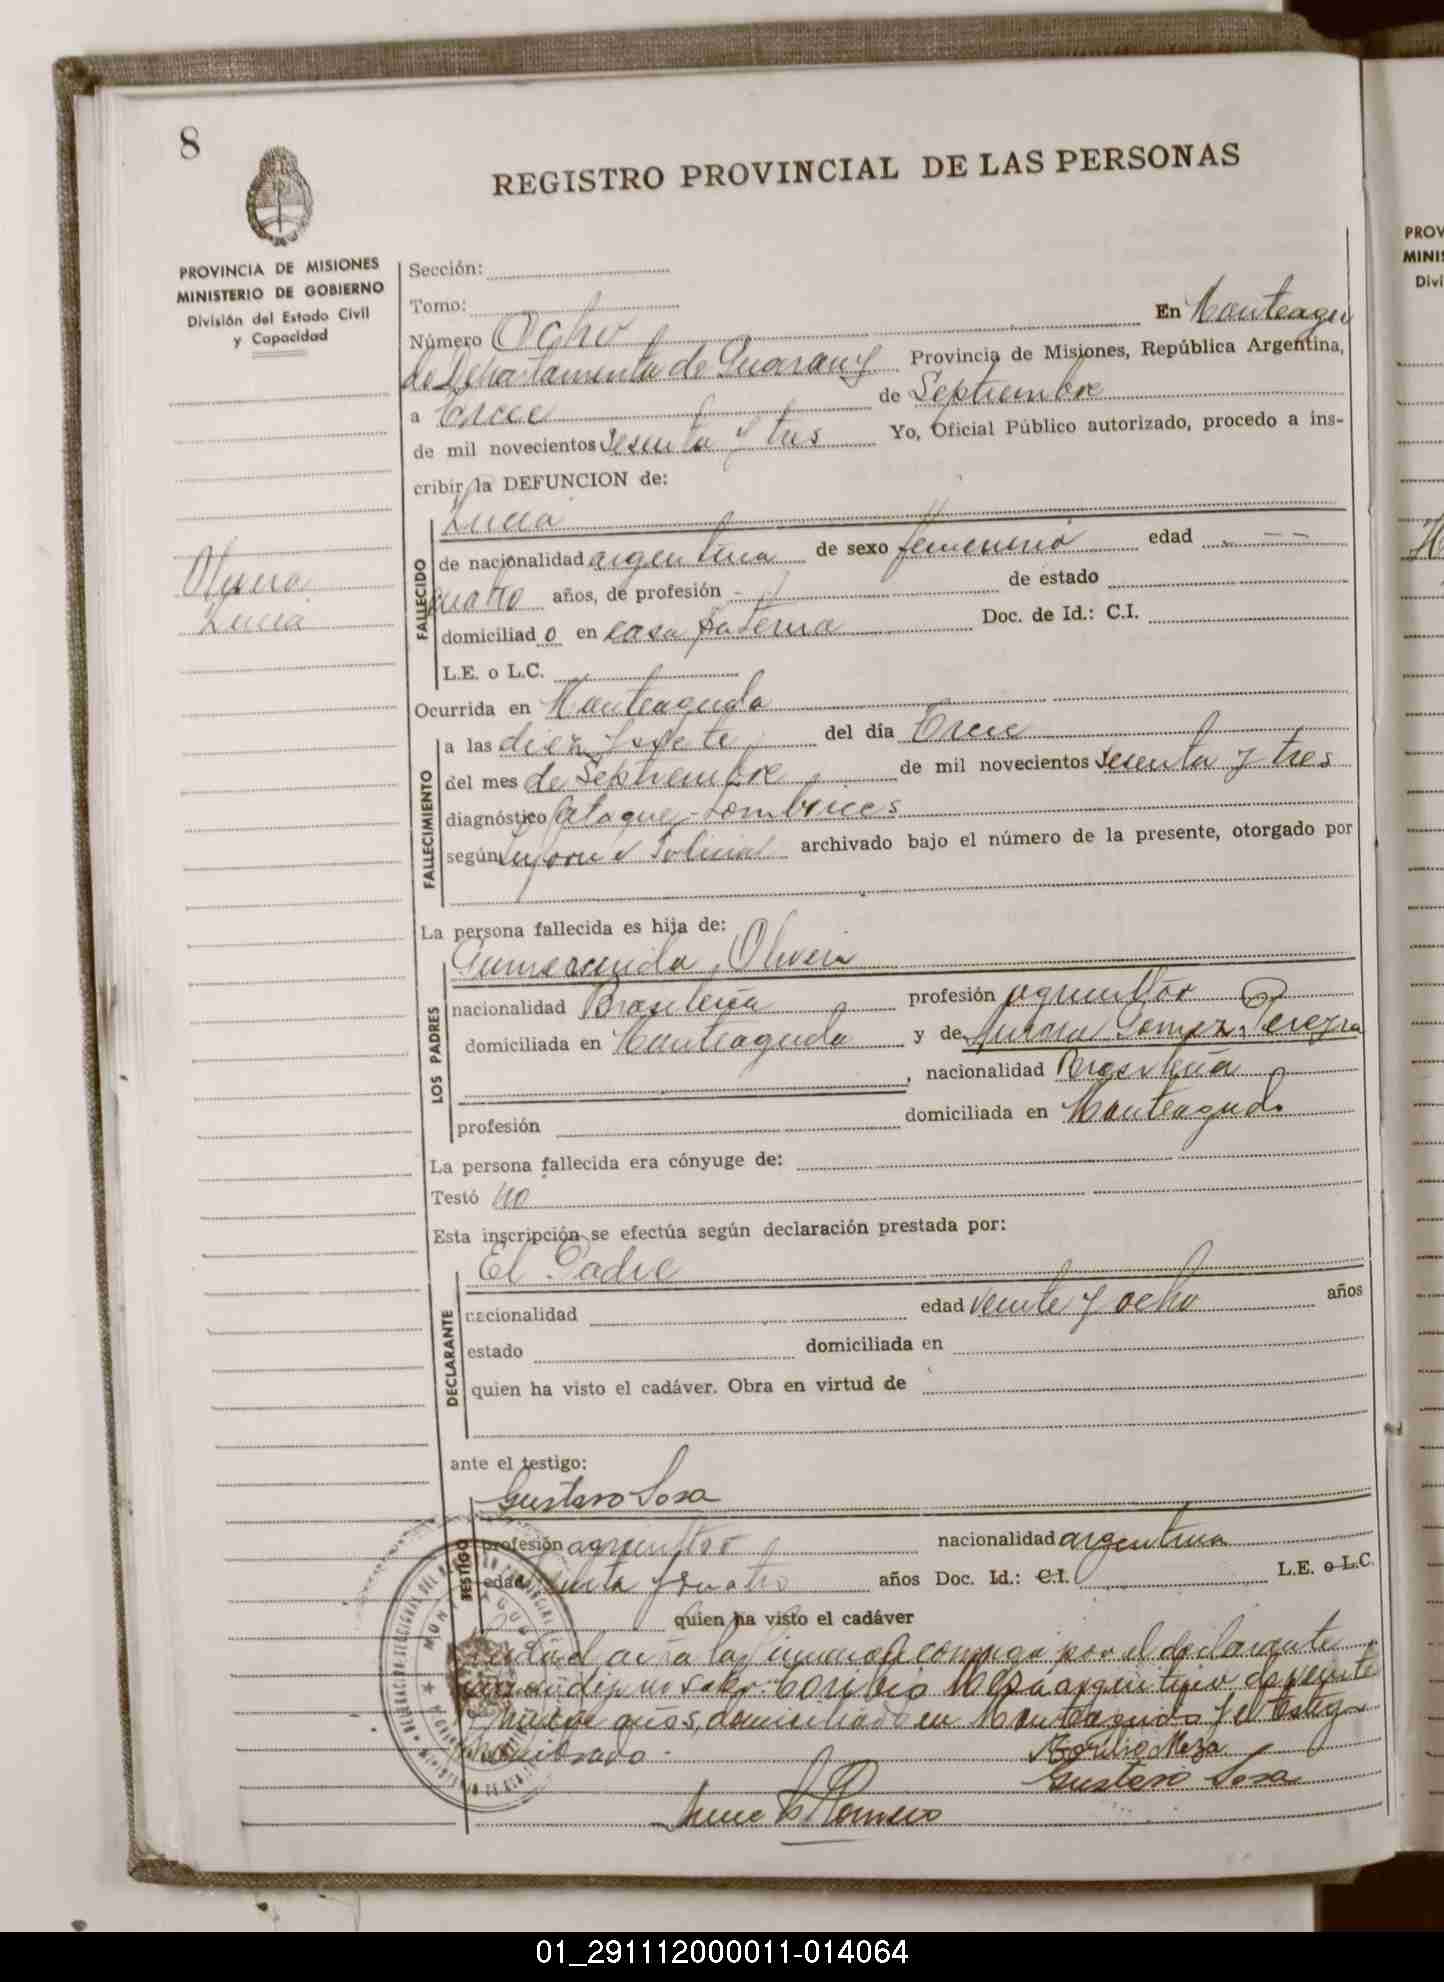 8
REGISTRO PROVINCIAL DE LAS PERSONAS
PROVINCIA DE MISIONES
MINISTERIO DE GOBIERNO
División del Estado Civil
y Capacidad
Olivera
Lucia
Sección:
Tomo:
Número Ocho En Monteagu
do Departamento de Guarany Provincia de Misiones, República Argentina,
a Trece de Septiembre
de mil novecientos sesenta y tres Yo, Oficial Público autorizado, procedo a ins-
cribir la DEFUNCION de:
Lucia
FALLECIDO
de nacionalidad argentina de sexo femenino edad - - -
cuatro años, de profesión - de estado
domiciliad o en casa paterna Doc. de Id.: C.I.
L.E. o L.C.
Ocurrida en Monteagudo
FALLECIMIENTO
a las diez y siete del día Trece
del mes de Septiembre de mil novecientos sesenta y tres
diagnóstico Ataque-Lombrices
según Informe Policial archivado bajo el número de la presente, otorgado por
La persona fallecida es hija de:
LOS PADRES
Gumercindo Olivera
nacionalidad Brasileña profesión agricultor
domiciliada en Monteagudo y de Aurora Gomez Pereyra
, nacionalidad Brasileña
profesión domiciliada en Monteagudo
La persona fallecida era cónyuge de:
Testó no
Esta inscripción se efectúa según declaración prestada por:
DECLARANTE
El Padre
nacionalidad edad veinte y ocho años
estado domiciliada en
quien ha visto el cadáver. Obra en virtud de
ante el testigo:
Gustavo Sosa
TESTIGO
profesión agricultor nacionalidad argentina
edad y cuatro años Doc. Id.: C.I. L.E. o L.C.
quien ha visto el cadáver
acta la conmigo por el declarante
Toribio Meza argentino de veinte
años, domiciliado en Monteagudo y el testigo
nombrado.
Toribio Meza
Gustavo Sosa
Romero
PROV
MINIS
Divi
01_291112000011-014064